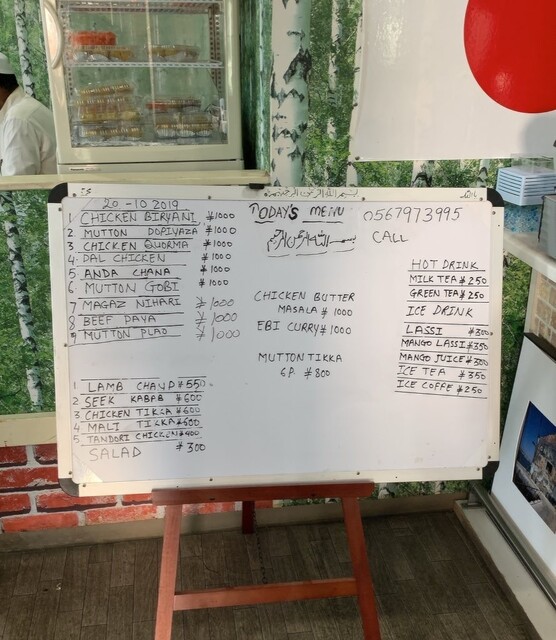 بسم الله الرحمن الرحيم
20-10-2019
TODAY'S MENU
0567973995
CALL
بسم الله الرحمن الرحيم
1 CHICKEN BIRYANI ¥1000
2. MUTTON DOPIYAZA ¥1000
3 CHICKEN QUORMA ¥1000
4. DAL CHICKEN ¥1000
5 ANDA CHANA ¥1000
6 MUTTON GOBI ¥1000
7 MAGAZ NIHARI ¥1000
8 BEEF PAYA ¥1000
9 MUTTON PLAO ¥1000
1 LAMB CHAMP ¥550
2 SEEK KABAB ¥600
3 CHICKEN TIKKA ¥600
4 MALI TIKKA ¥600
5 TANDORI CHICKEN ¥400
SALAD ¥300
CHICKEN BUTTER
MASALA ¥1000
EBI CURRY ¥1000
MUTTON TIKKA
6P. ¥800
HOT DRINK
MILK TEA ¥250
GREEN TEA ¥250
ICE DRINK
LASSI ¥300
MANGO LASSI ¥350
MANGO JUICE ¥300
ICE TEA ¥350
ICE COFFE ¥250